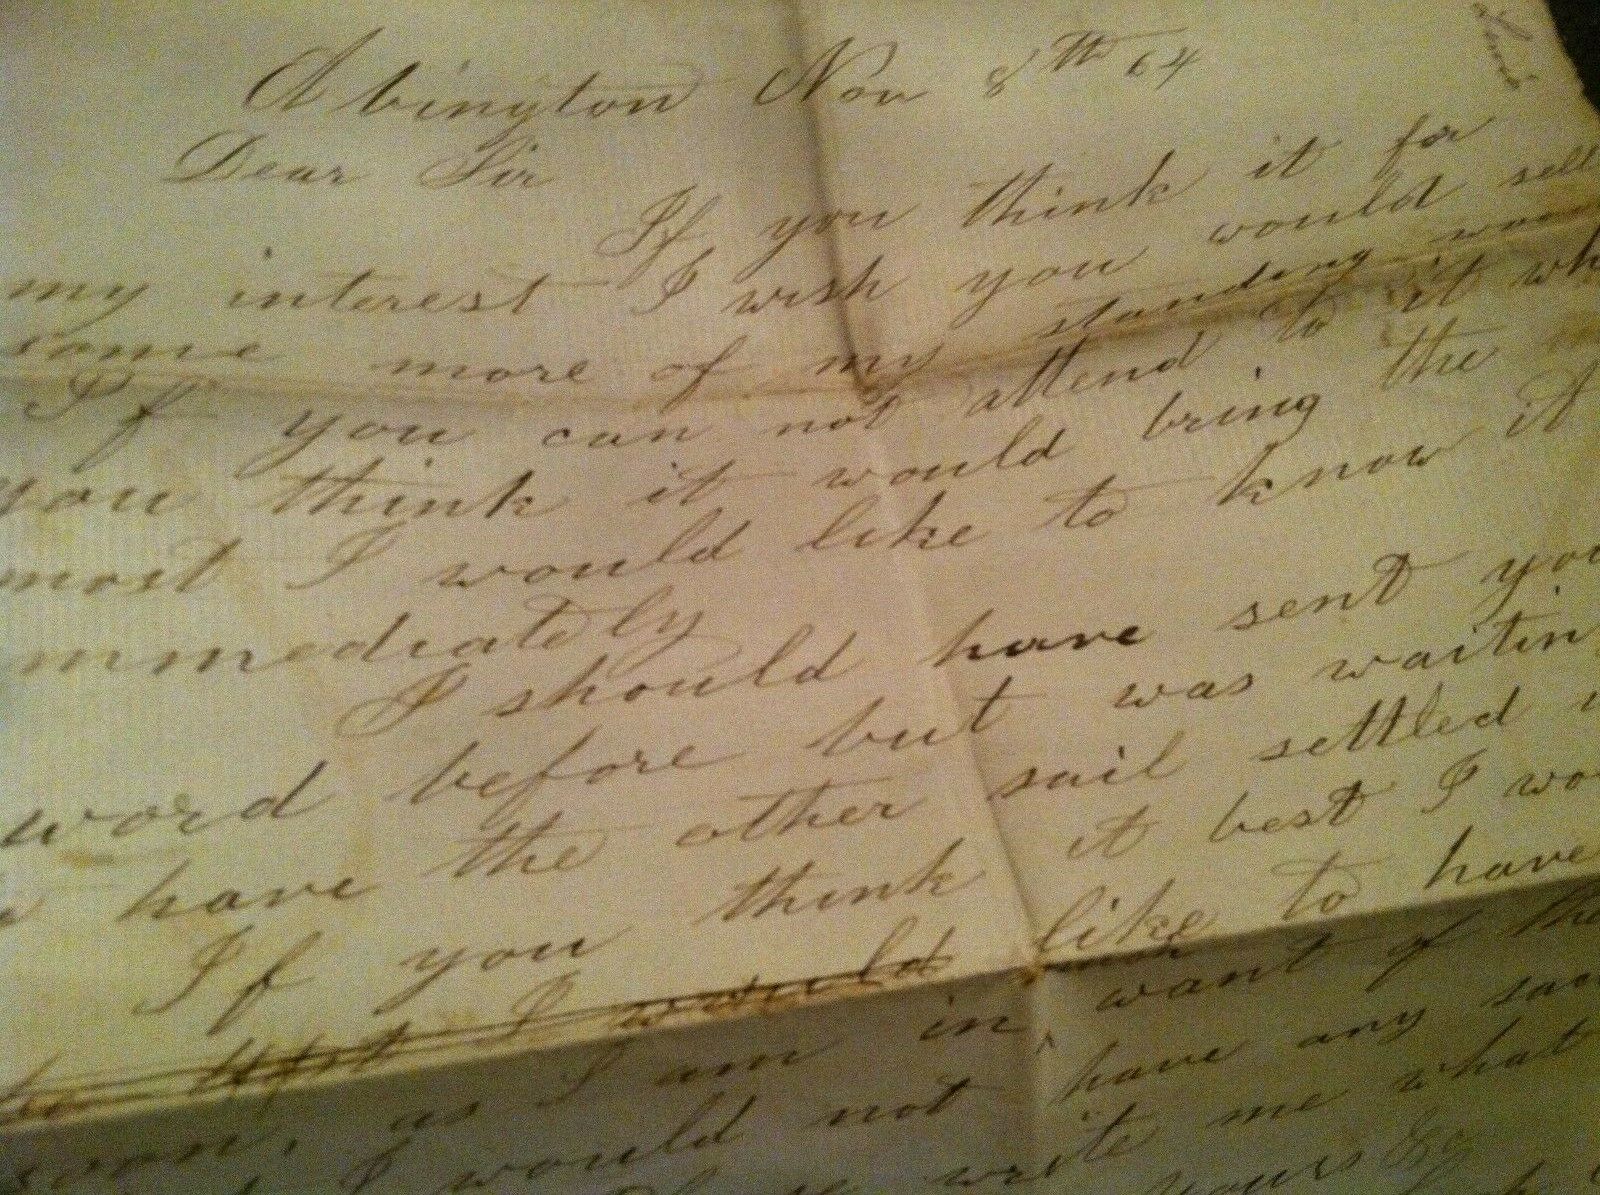 Abington Nov 8th 64
Dear Sir
If you think it for
my interest I wish you would sell
some more of my standing
If you can not attend to it
you think it would bring the
most I would like to know it
immediately
I should have sent you
word before but was waitin
have the other sail settled
If you think it best I
I would like to have
soon, as I am in want of the
I would not have any
write me what
yours &c